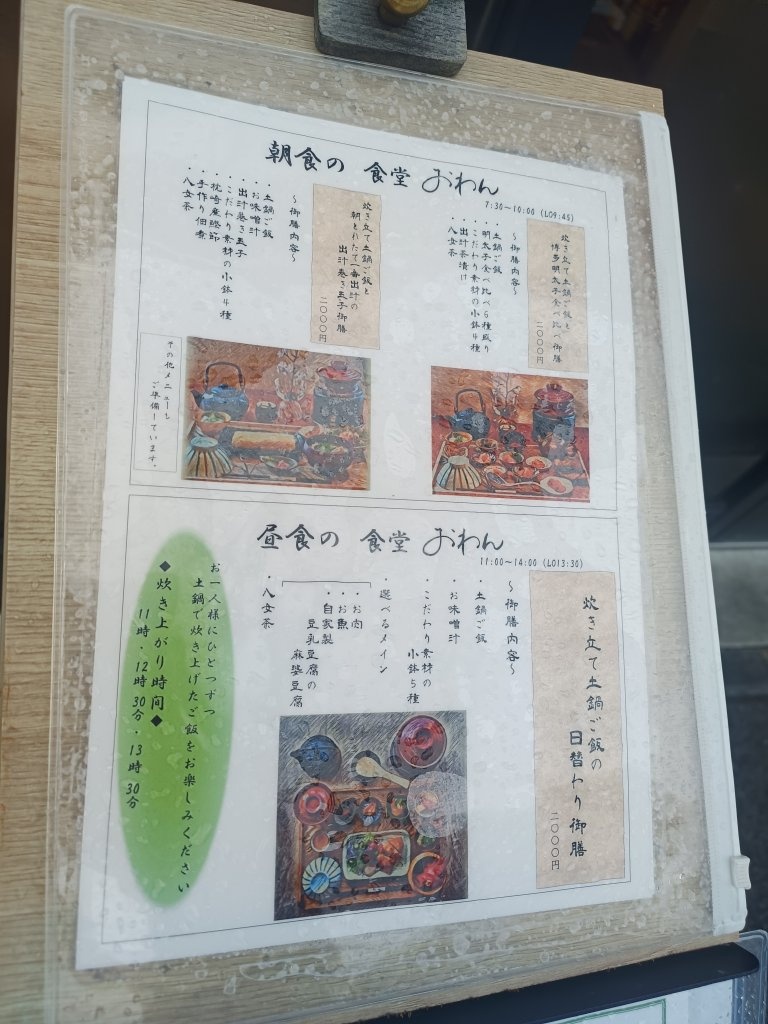 朝食の 食堂 おわん
7:30~10:00 (LO9:45)
炊き立て土鍋ご飯と
博多明太子食べ比べ御膳
二〇〇〇円
～御膳内容～
・土鍋ご飯
・明太子食べ比べ6種盛り
・こだわり素材の小鉢4種
・出汁茶漬け
・八女茶
炊き立て土鍋ご飯と
朝とれたて一番出汁の
出汁巻き玉子御膳
二〇〇〇円
～御膳内容～
・土鍋ご飯
・お味噌汁
・出汁巻き玉子
・こだわり素材の小鉢4種
・枕崎産鰹節
・手作り佃煮
・八女茶
その他メニューも
ご準備しています。
昼食の 食堂 おわん
11:00~14:00 (LO13:30)
炊き立て土鍋ご飯の
日替わり御膳
二〇〇〇円
～御膳内容～
・土鍋ご飯
・お味噌汁
・こだわり素材の
小鉢5種
・選べるメイン
・お肉
・お魚
・自家製
豆乳豆腐の
麻婆豆腐
・八女茶
お一人様にひとつずつ
土鍋で炊き上げたご飯をお楽しみください
◆炊き上がり時間◆
11時・12時30分・13時30分